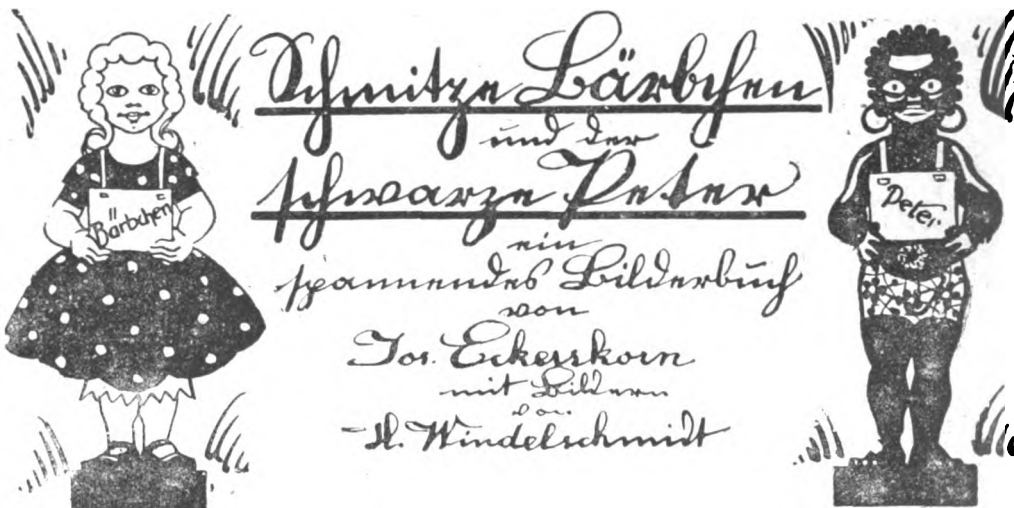 Schmitze Bärbchen
und der
schwarze Peter
ein
spannendes Bilderbuch
von
Jos. Eckerskorn
mit Bildern
von
H. Windelschmidt
Bärbchen
Peter